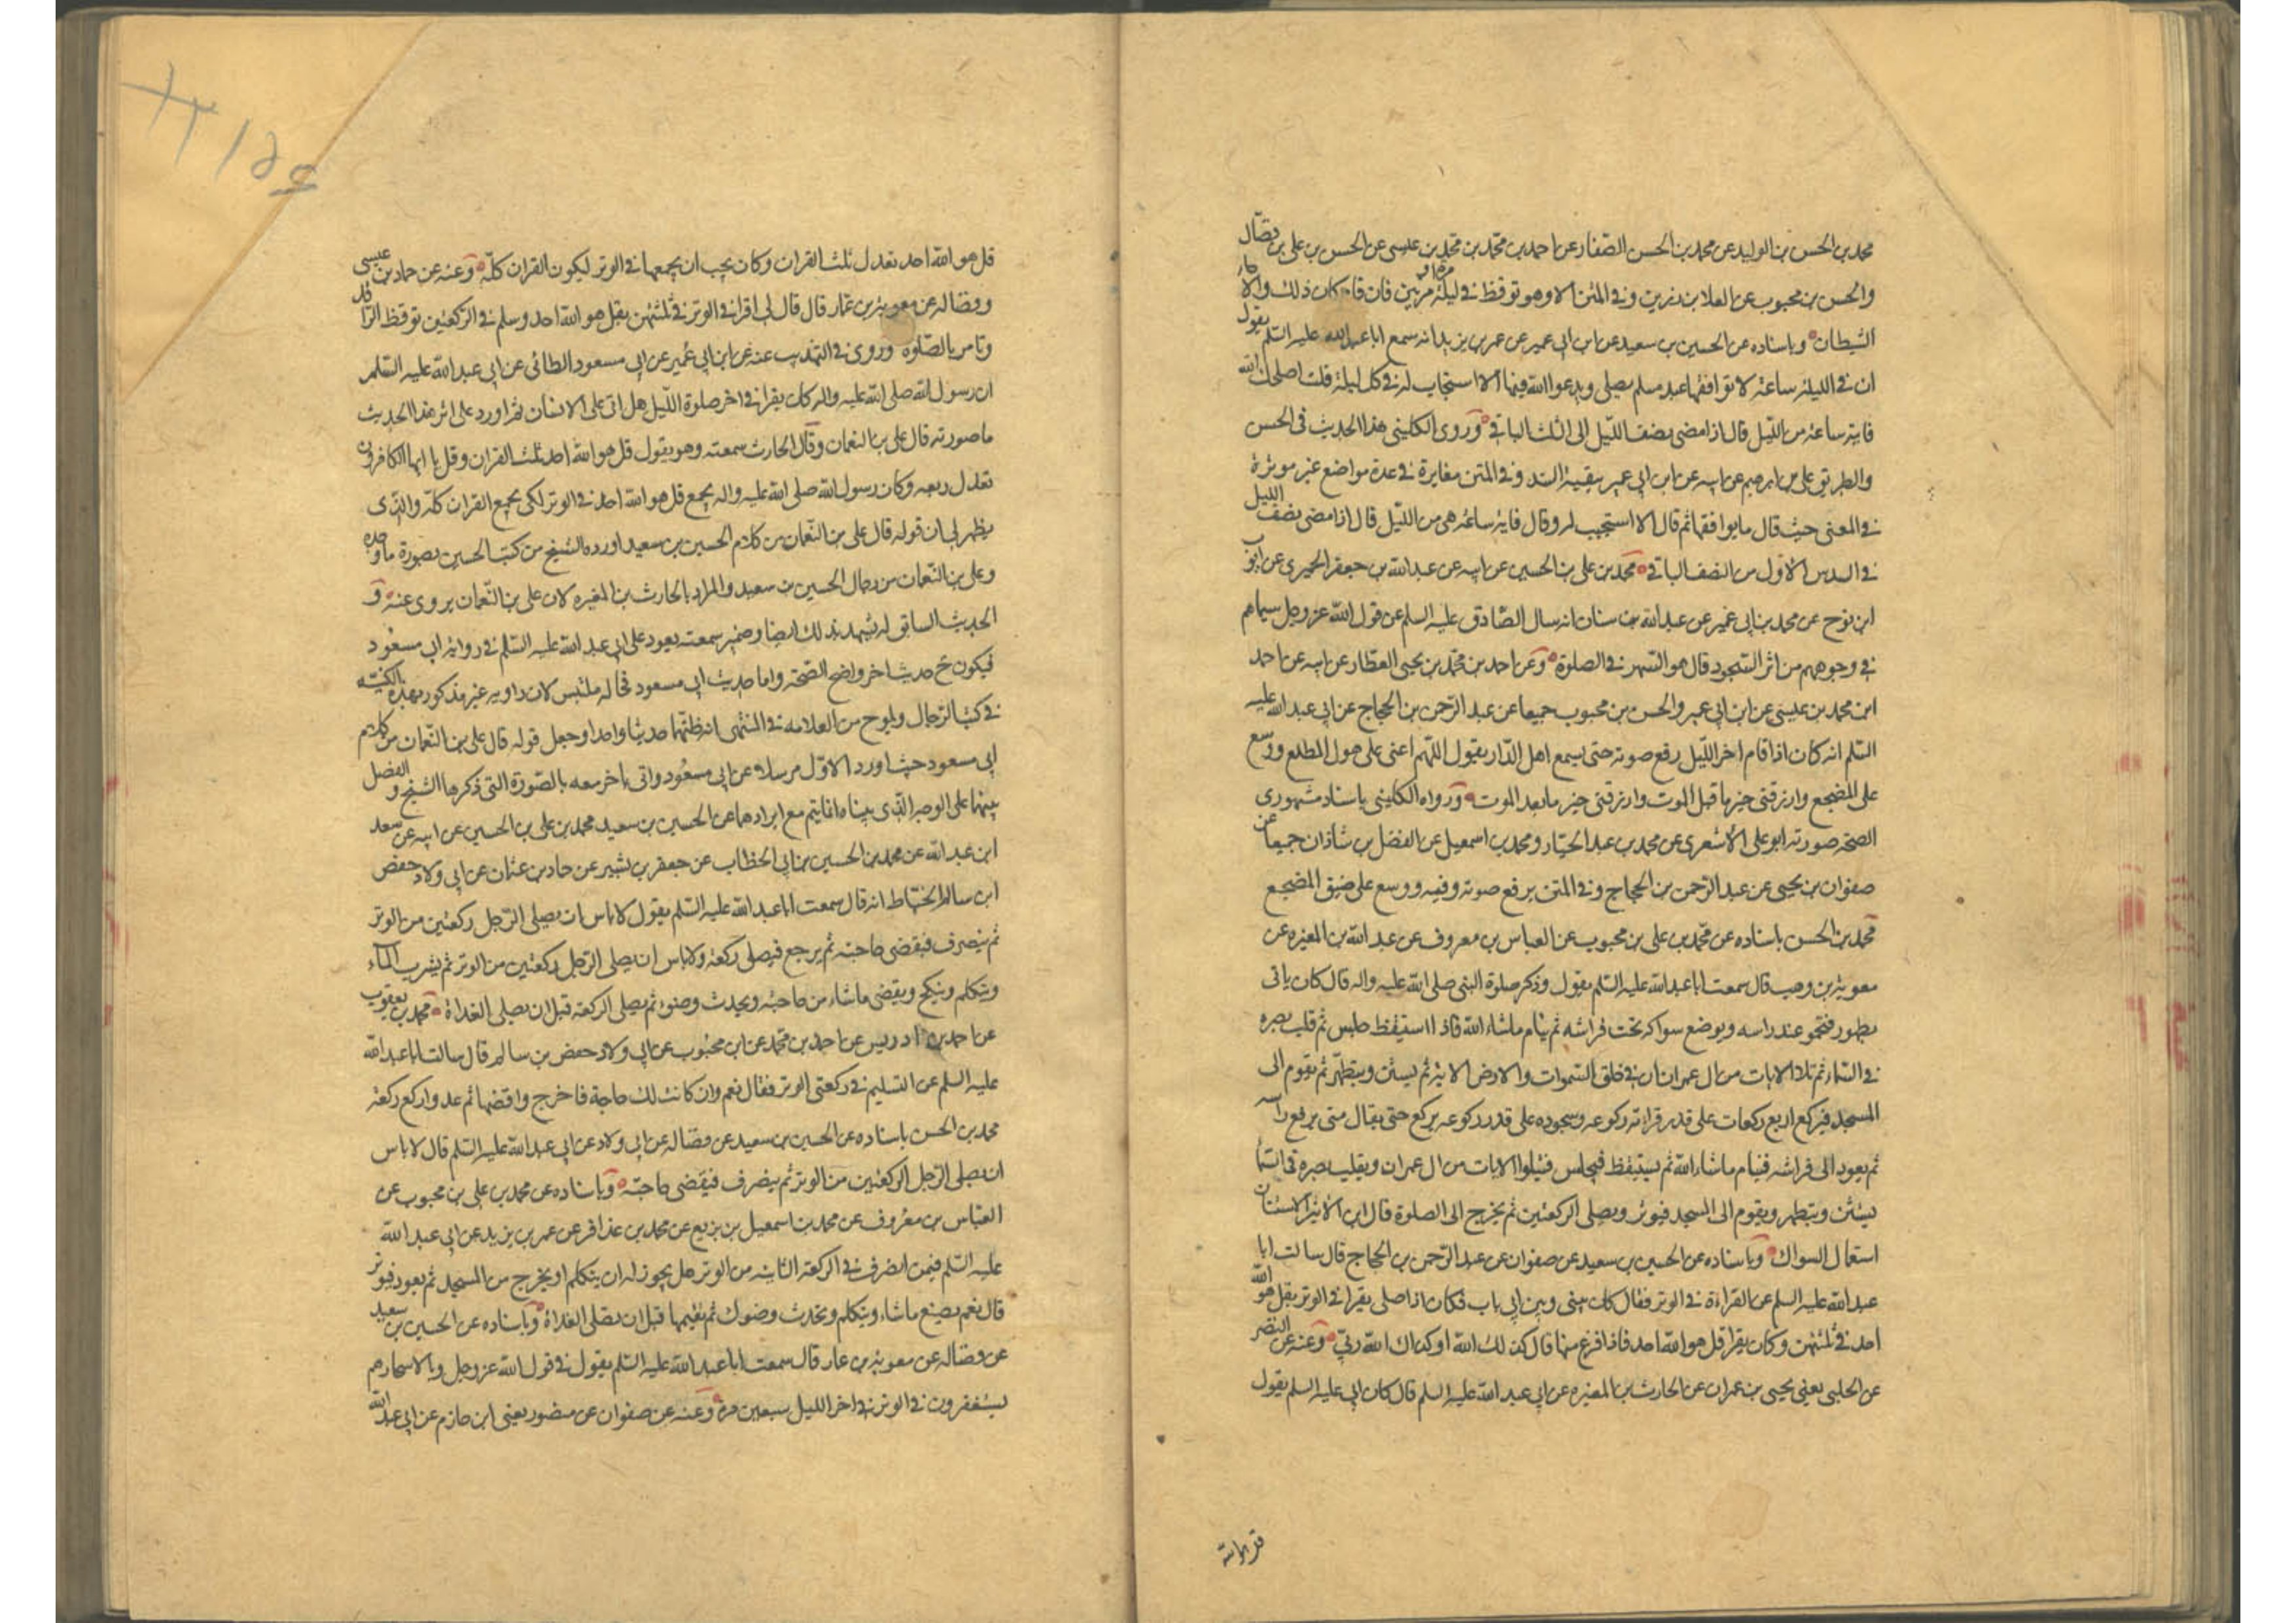 محمد بن الحسن بن الوليد عن محمد بن الحسن الصفار عن احمد بن محمد بن عيسى عن الحسن بن علي بن فضّال
والحسن بن محبوب عن العلا بن رزين وفي المتن الا وهو توقظ في ليلته مرتين فان قام كان ذلك والا
الشيطان وباسناده عن الحسين بن سعيد عن ابن ابي عمير عن عمر بن يزيد انه سمع ابا عبد الله عليه السّلم يقول
ان في الليلة ساعة لا توافقها عبد مسلم يصلي ويدعوا الله فيها الا استجاب له في كل ليلة قلت اصلحك الله
فاية ساعة من اللّيل قال اذا مضى نصف اللّيل الى الثلث الباقي وروى الكليني هذا الحديث في الحسن
والطريق علي بن ابرهيم عن ابيه عن ابن ابي عمير ببقية السند وفي المتن مغايرة في عدة مواضع غير موثرة
في المعنى حيث قال ما يوافقها ثم قال الا استجيب له وقال فاية ساعة هي من اللّيل قال اذا مضى نصف الليل
في السدس الاول من النصف الباقي محمد بن علي بن الحسين عن ابيه عن عبد الله بن جعفر الحميري عن ايوب
ابن نوح عن محمد بن ابي عمير عن عبد الله بن سنان انه سال الصّادق عليه السلم عن قول الله عز وجل سيماهم
في وجوههم من اثر السّجود قال هو السّهر في الصلوة وعن احمد بن محمد بن يحيى العطار عن ابيه عن احمد
ابن محمد بن عيسى عن ابن ابي عمير والحسن بن محبوب جميعا عن عبد الرّحمن بن الحجاج عن ابي عبد الله عليه
السّلم انه كان اذا قام اخر اللّيل رفع صوته حتى يسمع اهل الدّار يقول اللّهم اعنى على هول المطلع ووسّع
على المضجع وارزقنى خير ما قبل الموت وارزقنى خير ما بعد الموت ورواه الكليني باسناد مشهوري
الصحّة صورته ابو علي الاشعري عن محمد بن عبد الجبّار ومحمد بن اسمعيل عن الفضل بن شاذان جميعا عن
صفوان بن يحيى عن عبد الرّحمن بن الحجاج وفي المتن يرفع صوته وفيه ووسع على ضيق المضجع
محمد بن الحسن باسناده عن محمد بن علي بن محبوب عن العباس بن معروف عن عبد الله بن المغيره عن
معوية بن وهب قال سمعت ابا عبد الله عليه السّلم يقول وذكر صلوة النبى صلى الله عليه واله قال كان ياتى
بطهور فتخمر عند راسه ويوضع سواكه تحت فراشه ثم ينام ما شاء الله فاذا استيقظ جلس ثم قلب بصره
في السّماء ثم تلا الايات من ال عمران ان في خلق السّموات والارض الاية ثم يستن ويتطهّر ثم يقوم الى
المسجد فيركع اربع ركعات على قدر قراءته ركوعه وسجوده على قدر ركوعه يركع حتى يقال متى يرفع راسه
ثم يعود الى فراشه فينام ما شاء الله ثم يستيقظ فيجلس فيتلوا الايات من ال عمران ويقلب بصره في السّمأ
يستن ويتطهر ويقوم الى المسجد فيوتر ويصلى الركعتين ثم يخرج الى الصلوة قال ابن الاثير الاستنان
استعمال السواك وباسناده عن الحسين بن سعيد عن صفوان عن عبد الرّحمن بن الحجاج قال سالت ابا
عبد الله عليه السلم عن القراءة في الوتر فقال كان بينى وبين ابي باب فكان اذا صلى يقرا في الوتر بقل هو الله
احد في ثلثتهن وكان يقرا قل هو الله احد فاذا فرغ منها قال كذلك الله او كذاك الله ربّي وعنه عن النضر
عن الحلبى يعنى يحيى بن عمران عن الحارث بن المغيرة عن ابي عبد الله عليه السلم قال كان ابي عليه السلم يقول
قل هو الله
قل هو الله احد تعدل ثلث القران وكان يجب ان يجمعها في الوتر ليكون القران كلّه وعنه عن حماد بن عيسى
وفضاله عن معوية بن عمار قال قال لى اقرا في الوتر في ثلثتهن بقل هو الله احد وسلم في الركعتين توقظ الرّاقد
وتامر بالصّلوة وروى في التهذيب عنه عن ابن ابي عمير عن ابي مسعود الطائي عن ابي عبد الله عليه السّلم
ان رسول الله صلى الله عليه واله كان يقرا في اخر صلوة اللّيل هل اتى على الانسان ثم اورد على اثر هذا الحديث
ما صورته قال علي بن النعمان وقال الحارث سمعته وهو يقول قل هو الله احد ثلث القران وقل يا ايها الكافرون
تعدل ربعه وكان رسول الله صلى الله عليه واله يجمع قل هو الله احد في الوتر لكى يجمع القران كلّه والذى
يظهر لي ان قوله قال علي بن النّعمان من كلام الحسين بن سعيد اورده الشيخ من كتب الحسين بصورة ما وجده
وعلي بن النّعمان من رجال الحسين بن سعيد والمراد بالحارث بن المغيره لان علي بن النّعمان يروى عنه و
الحديث السابق له يشهد بذلك ايضا وضمير سمعته يعود على ابي عبد الله عليه السّلم في رواية ابي مسعود
فيكون ح حديثا اخر واضح الصّحّة واما حديث ابي مسعود فحاله ملتبس لان راويه غير مذكور بهذه الكنيّه
في كتب الرّجال ويلوح من العلامه في المنتهى انه ظنّهما حديثا واحدا وجعل قوله قال علي بن النّعمان من كلام
ابي مسعود حيث اورد الاوّل مرسلا عن ابي مسعود واتى باخر معه بالصّورة التى ذكرها الشّيخ والفصل
بينهما على الوجه الّذى بيناه انما يتم مع ايرادهما عن الحسين بن سعيد محمد بن علي بن الحسين عن ابيه عن سعد
ابن عبد الله عن محمد بن الحسين بن ابي الخطاب عن جعفر بن بشير عن حماد بن عثمان عن ابي ولاد حفص
ابن سالم الحنّاط انه قال سمعت ابا عبد الله عليه السّلم يقول لا باس ان يصلى الرّجل ركعتين من الوتر
ثم ينصرف فيقضى حاجته ثم يرجع فيصلى ركعة ولا باس ان يصلى الرّجل ركعتين من الوتر ثم يشرب الماء
ويتكلم وينكح ويقضى ما شاء من حاجته ويحدث وضوء ثم يصلى الركعة قبل ان يصلى الغداة محمد بن يعقوب
عن احمد بن ادريس عن احمد بن محمد عن ابن محبوب عن ابي ولاد حفص بن سالم قال سالت ابا عبد الله
عليه السلم عن التسليم في ركعتى الوتر فقال نعم وان كانت لك حاجة فاخرج واقضها ثم عد واركع ركعة
محمد بن الحسن باسناده عن الحسين بن سعيد عن فضاله عن ابي ولاد عن ابي عبد الله عليه السّلم قال لا باس
ان يصلى الرّجل الركعتين من الوتر ثم ينصرف فيقضى حاجته وباسناده عن محمد بن علي بن محبوب عن
العبّاس بن معروف عن محمد بن اسمعيل بن بزيع عن محمد بن عذافر عن عمر بن يزيد عن ابي عبد الله
عليه السّلم فيمن انصرف في الركعة الثانيه من الوتر هل يجوز له ان يتكلم او يخرج من المسجد ثم يعود فيوتر
قال نعم يصنع ما شاء ويتكلم ويحدث وضوك ثم تقيمها قبل ان يصلى الغداة وباسناده عن الحسين بن سعيد
عن فضاله عن معوية بن عمار قال سمعت ابا عبد الله عليه السّلم يقول في قول الله عز وجل وبالاسحار هم
يستغفرون في الوتر في اخر الليل سبعين مرة وعنه عن صفوان عن منصور يعنى ابن حازم عن ابي عبد الله